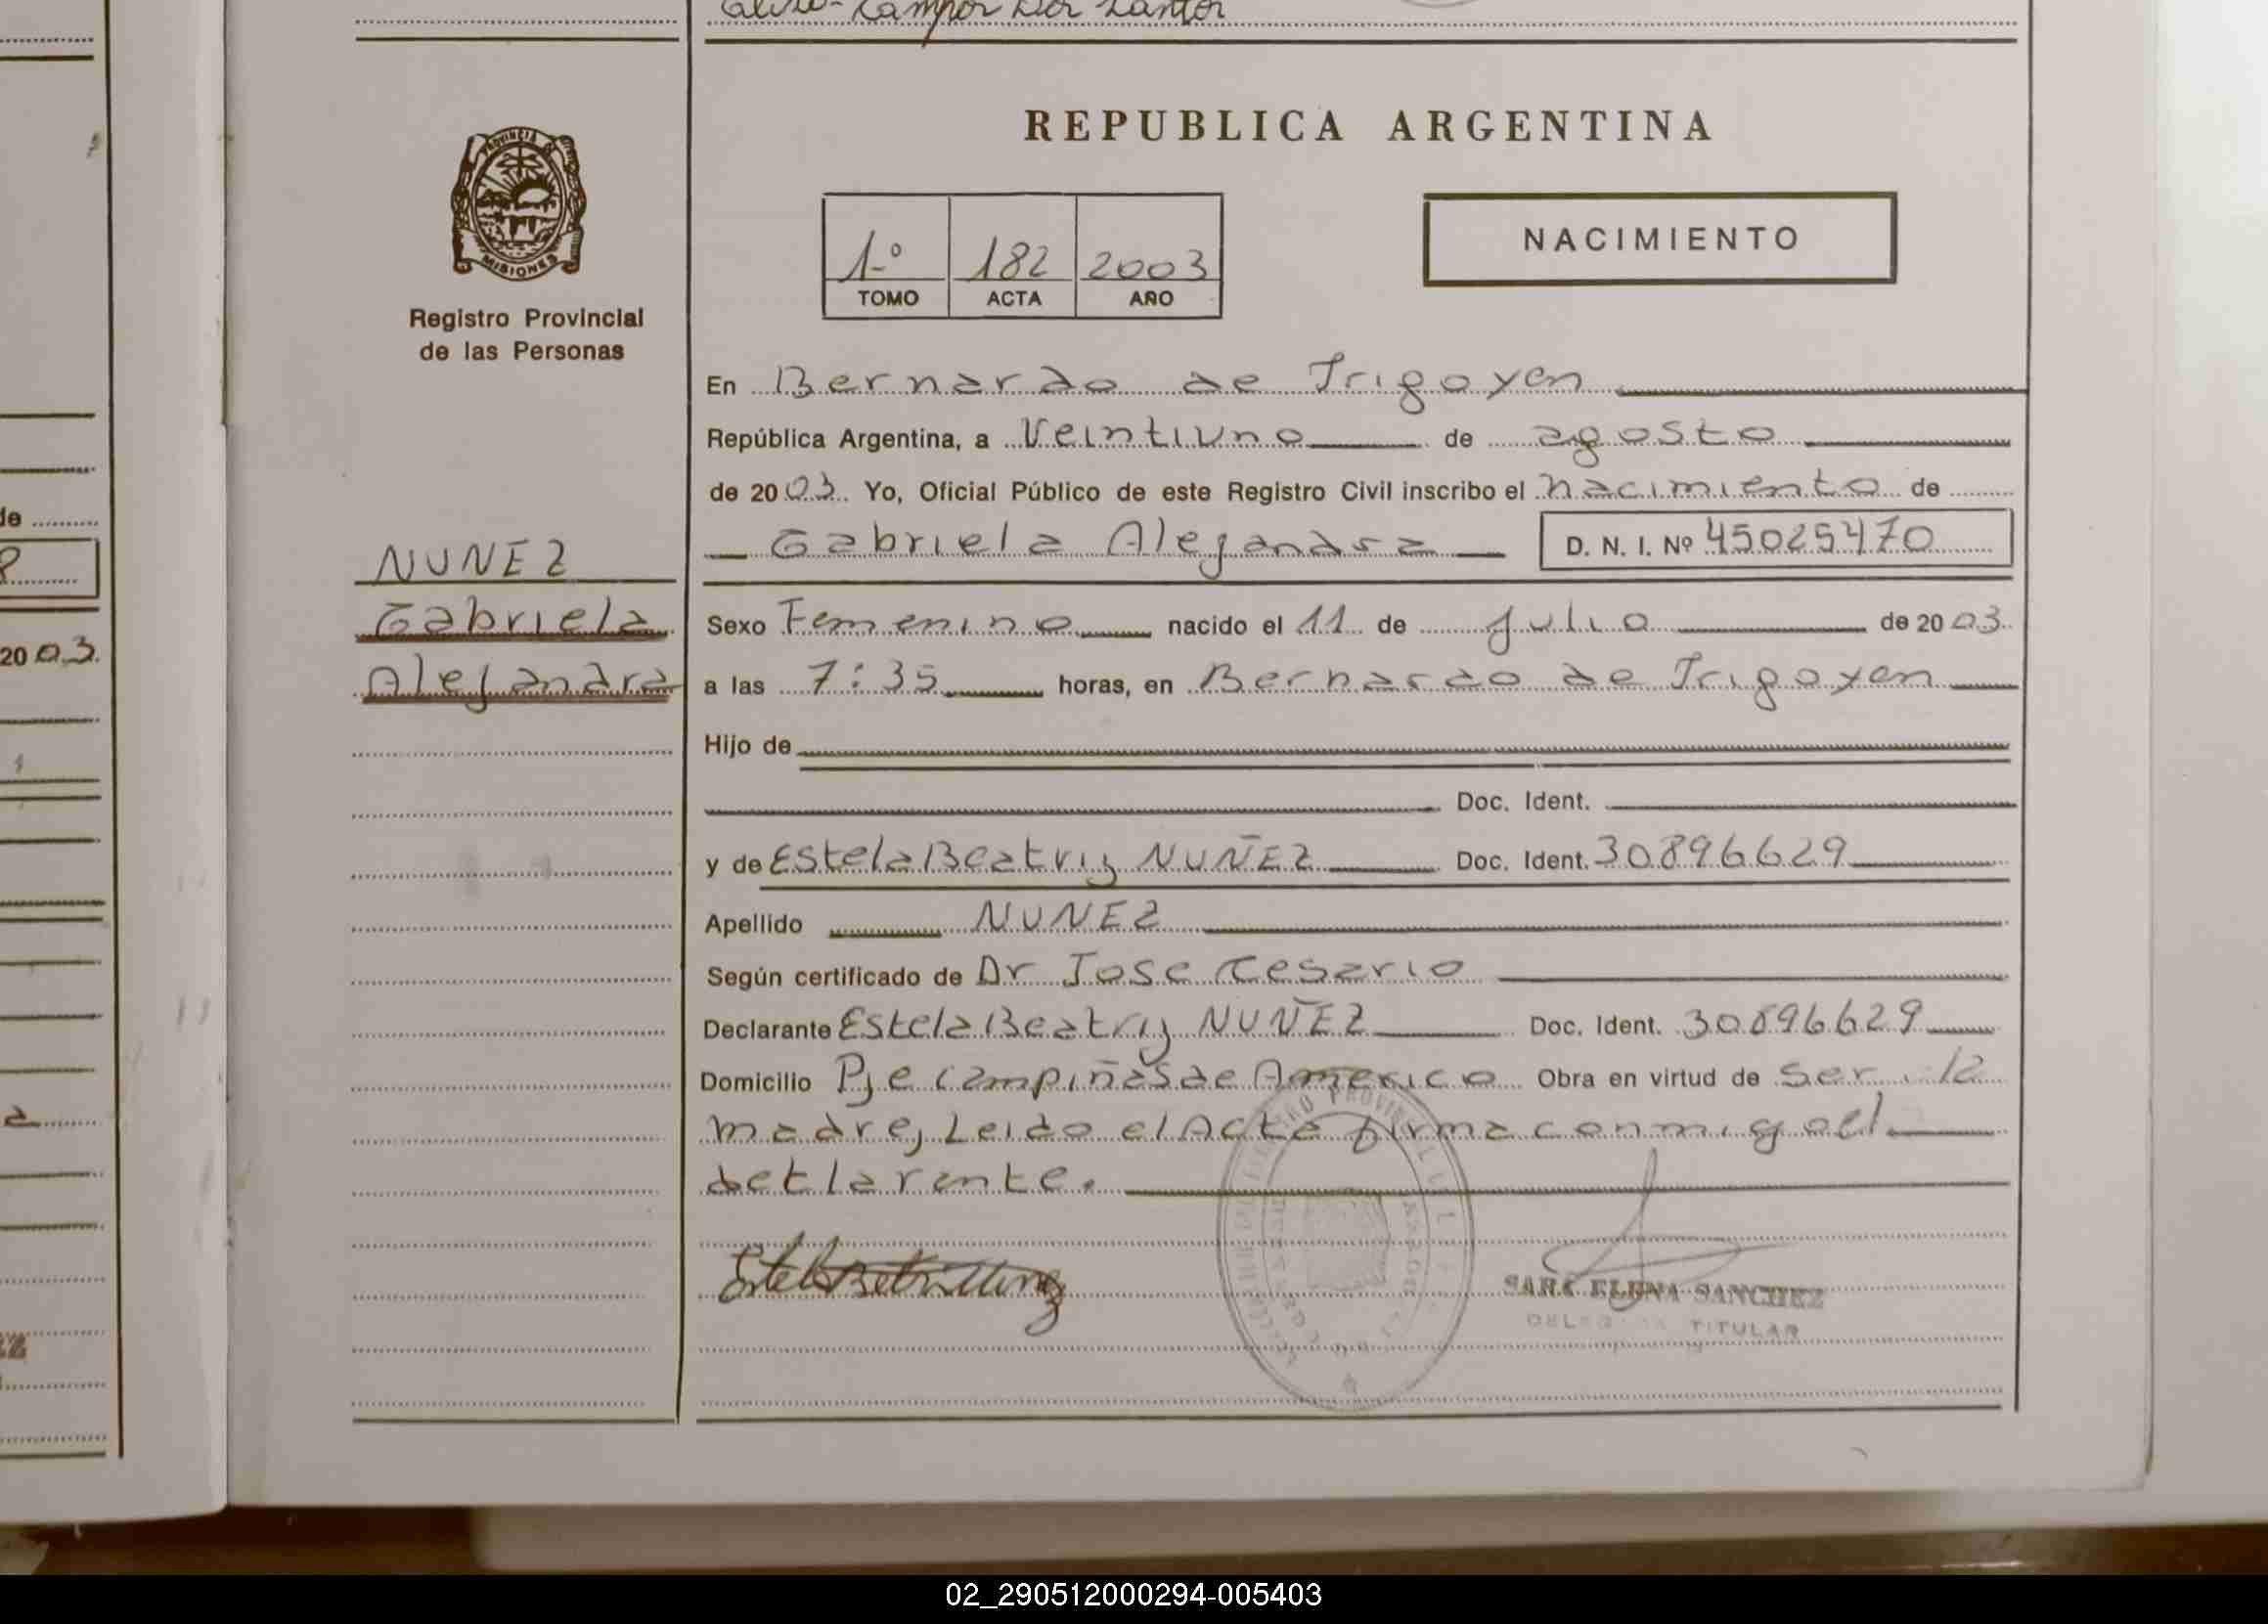 Campos Dos Santos
REPUBLICA ARGENTINA
PROVINCIA DE
MISIONES
Registro Provincial
de las Personas
1-º 182 2003
TOMO ACTA AÑO
NACIMIENTO
En Bernardo de Irigoyen
República Argentina, a Veintiuno de agosto
de 2003. Yo, Oficial Público de este Registro Civil inscribo el nacimiento de
Gabriela Alejandra D. N. I. Nº 45025470
NUNEZ
Gabriela
Alejandra
Sexo Femenino nacido el 11 de Julio de 2003
a las 7:35 horas, en Bernardo de Irigoyen
Hijo de
Doc. Ident.
y de Estela Beatriz NUÑEZ Doc. Ident. 30896629
Apellido NUNEZ
Según certificado de Dr Jose Cesario
Declarante Estela Beatriz NUÑEZ Doc. Ident. 30896629
Domicilio Pje Campiñas de Americo Obra en virtud de ser la
madre, Leido el Acta firma conmigo el
declarante.
SARA ELENA SANCHEZ
TITULAR
de
2003
02_290512000294-005403